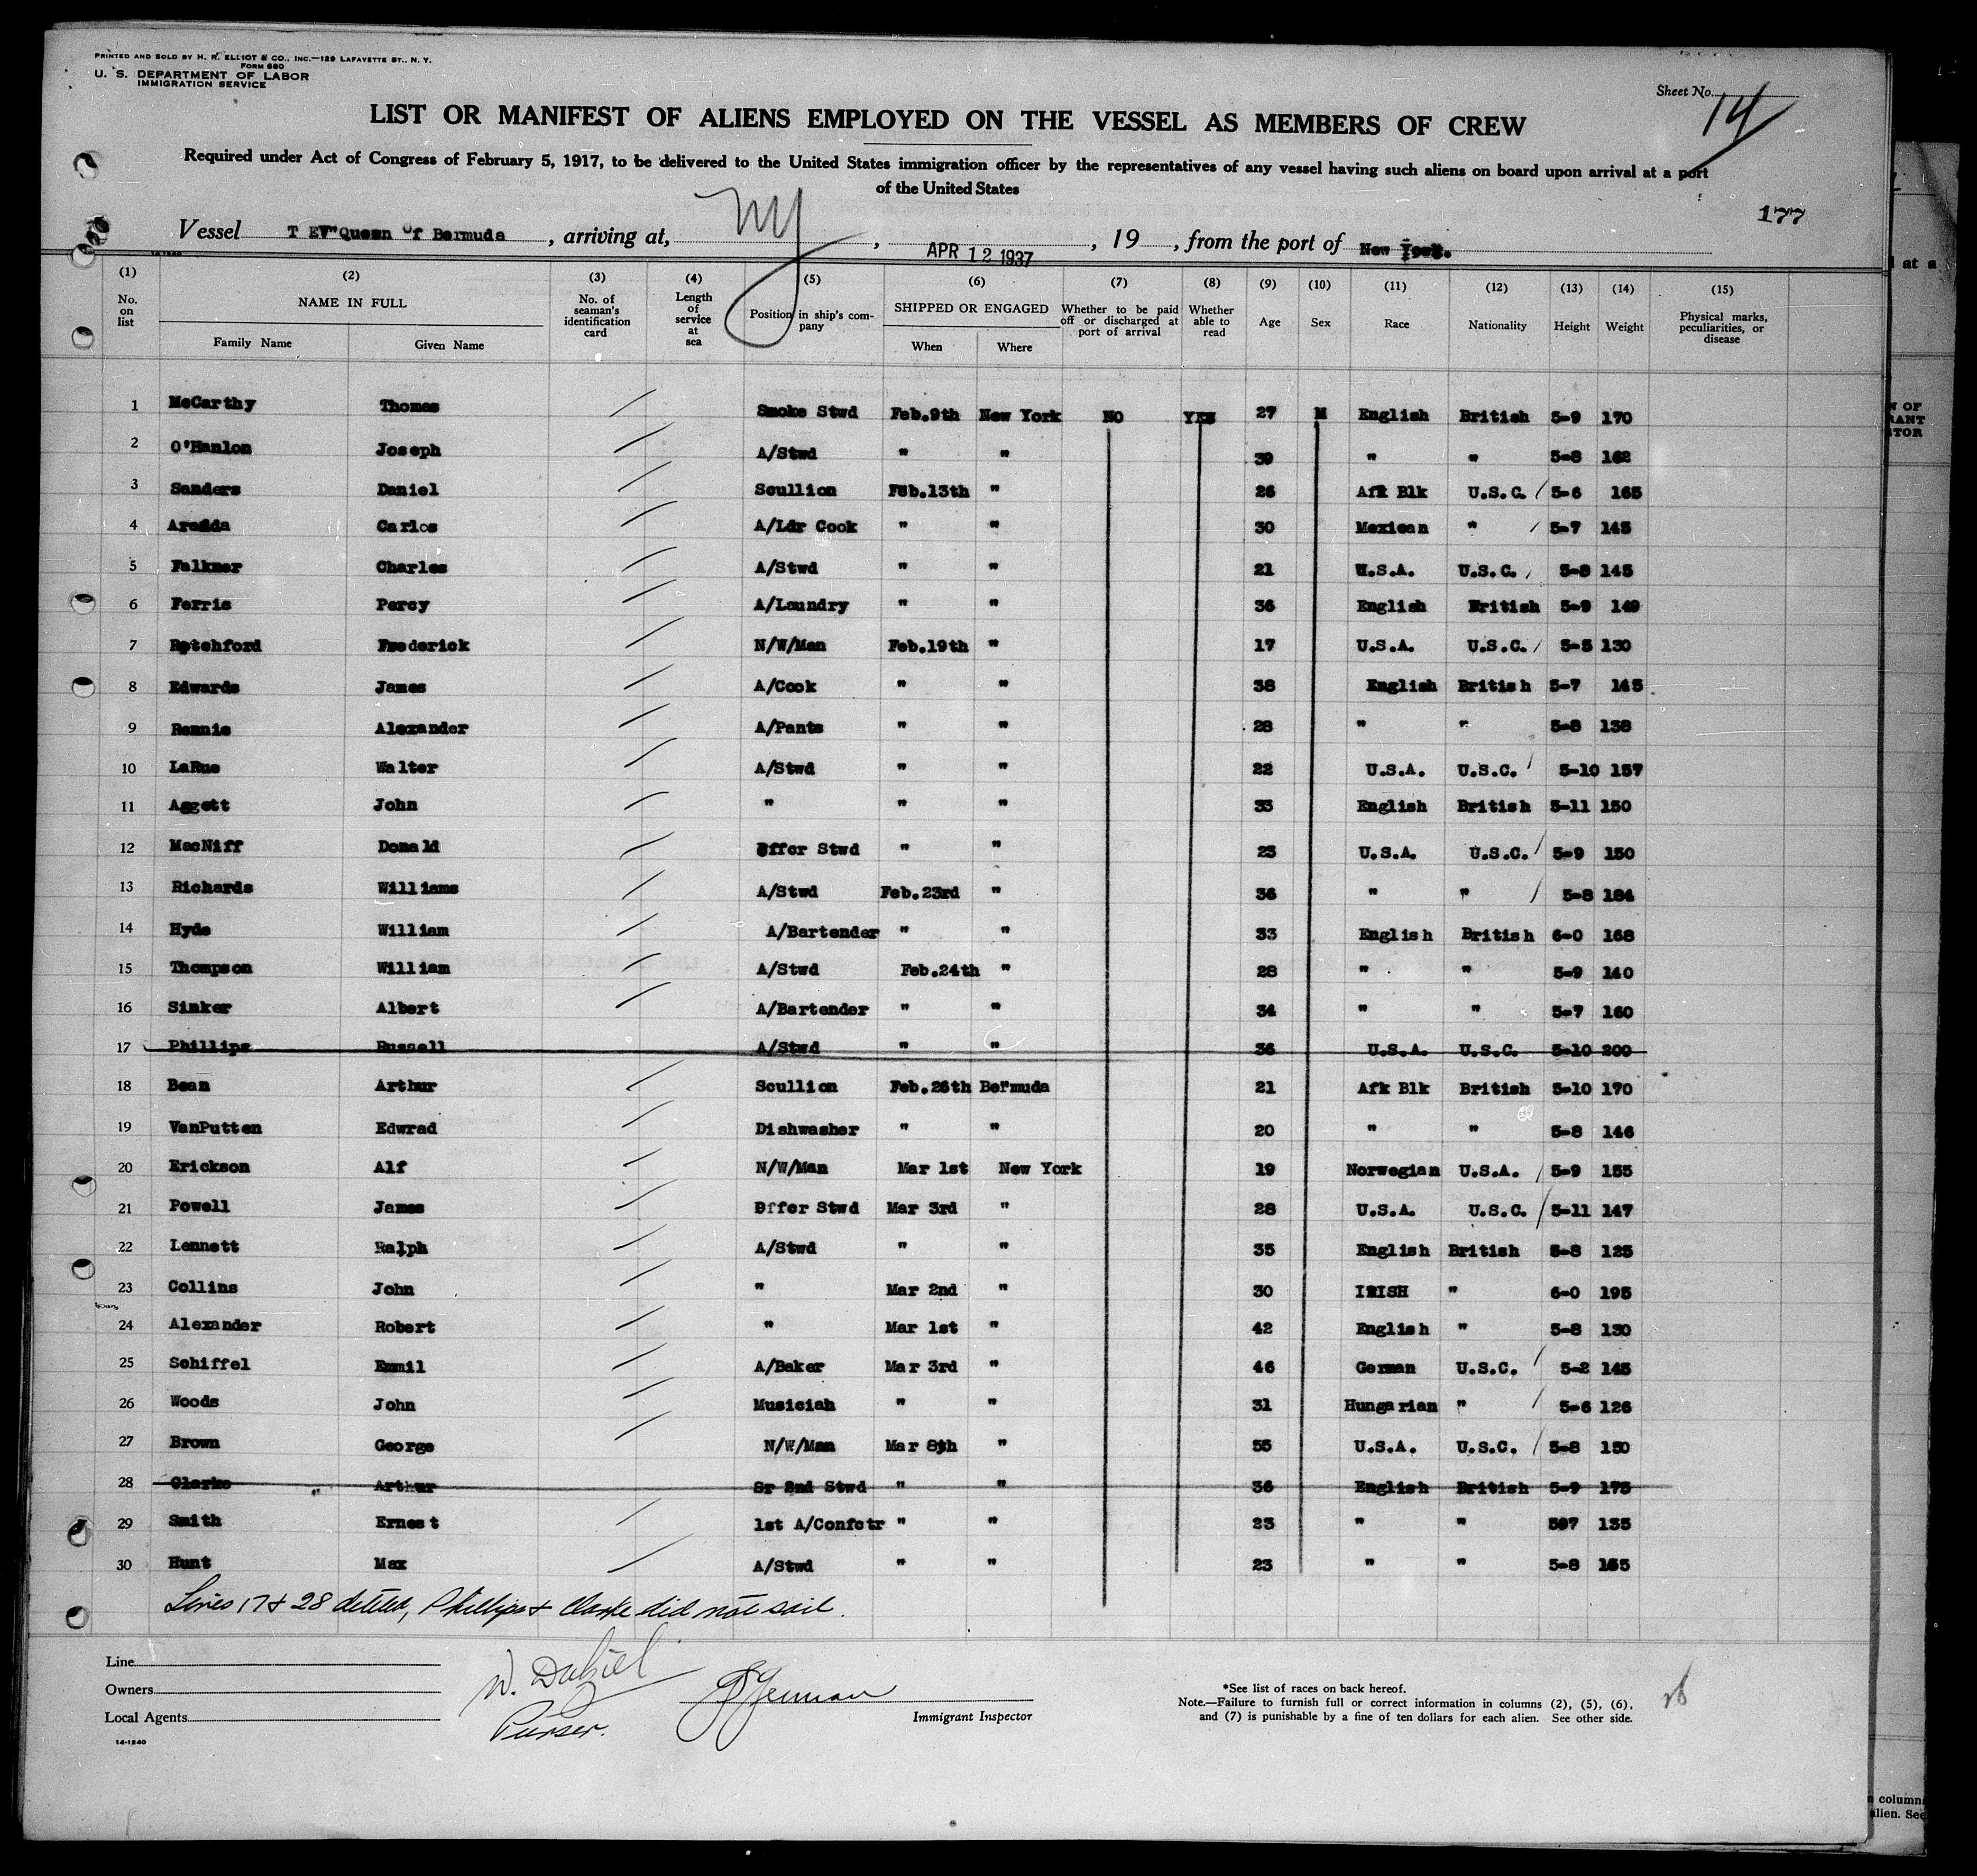 PRINTED AND SOLD BY H. R. ELLIOT & CO., INC.—129 LAFAYETTE ST., N. Y.
FORM 680
U. S. DEPARTMENT OF LABOR
IMMIGRATION SERVICE
Sheet No. 14
LIST OR MANIFEST OF ALIENS EMPLOYED ON THE VESSEL AS MEMBERS OF CREW
Required under Act of Congress of February 5, 1917, to be delivered to the United States immigration officer by the representatives of any vessel having such aliens on board upon arrival at a port
of the United States
177
Vessel T EV"Queen Of Bermuda, arriving at, NY, APR 12 1937, 19, from the port of New York.
(1) (2) (3) (4) (5) (6) (7) (8) (9) (10) (11) (12) (13) (14) (15)
No. on list NAME IN FULL Family Name Given Name No. of seaman's identification card Length of service at sea Position in ship's company SHIPPED OR ENGAGED When Where Whether to be paid off or discharged at port of arrival Whether able to read Age Sex Race Nationality Height Weight Physical marks, peculiarities, or disease
1 McCarthy Thomas Smoke Stwd Feb.9th New York NO YES 27 M English British 5-9 170
2 O'Hanlon Joseph A/Stwd " " 39 " " 5-8 162
3 Sanders Daniel Scullion Feb.13th " 26 Afk Blk U.S.C. 5-6 165
4 Carlos A/Ldr Cook " " 30 Mexican " 5-7 145
5 Falkner Charles A/Stwd " " 21 U.S.A. U.S.C. 5-8 145
6 Ferris Percy A/Laundry " " 36 English British 5-9 149
7 Rotchford Frederick N/W/Man Feb.19th " 17 U.S.A. U.S.C. 5-5 130
8 Edwards James A/Cook " " 38 English British 5-7 145
9 Rennie Alexander A/Pants " " 28 " " 5-8 138
10 LaRue Walter A/Stwd " " 22 U.S.A. U.S.C. 5-10 157
11 Aggett John " " " 33 English British 5-11 150
12 MacNiff Donald Bffer Stwd " " 23 U.S.A. U.S.C. 5-9 150
13 Richards Williams A/Stwd Feb.23rd " 36 " " 5-8 184
14 Hyde William A/Bartender " " 33 English British 6-0 168
15 Thompson William A/Stwd Feb.24th " 28 " " 5-9 140
16 Sinker Albert A/Bartender " " 34 " " 5-7 160
17 Phillips Russell A/Stwd " " 36 U.S.A. U.S.C. 5-10 200
18 Bean Arthur Scullion Feb.26th Bermuda 21 Afk Blk British 5-10 170
19 VanPutten Edwrad Dishwasher " " 20 " " 5-8 146
20 Erickson Alf N/W/Man Mar 1st New York 19 Norwegian U.S.A. 5-9 155
21 Powell James Bffer Stwd Mar 3rd " 28 U.S.A. U.S.C. 5-11 147
22 Lennett Ralph A/Stwd " " 35 English British 5-8 125
23 Collins John " Mar 2nd " 30 IRISH " 6-0 195
24 Alexander Robert " Mar 1st " 42 English " 5-8 130
25 Schiffel Emmil A/Baker Mar 3rd " 46 German U.S.C. 5-2 145
26 Woods John Musiciah " " 31 Hungarian " 5-6 126
27 Brown George N/W/Man Mar 8th " 55 U.S.A. U.S.C. 5-8 150
28 Clarke Arthur Sr 2nd Stwd " " 36 English British 5-9 175
29 Smith Ernest 1st A/Confctr " " 23 " " 507 135
30 Hunt Max A/Stwd " " 23 " " 5-8 155
Lines 17 & 28 deleted, Phillips & Clarke did not sail.
Line
Owners
Local Agents
W. Dalziel
Purser.
Immigrant Inspector
*See list of races on back hereof.
Note.—Failure to furnish full or correct information in columns (2), (5), (6),
and (7) is punishable by a fine of ten dollars for each alien. See other side.
14-1240